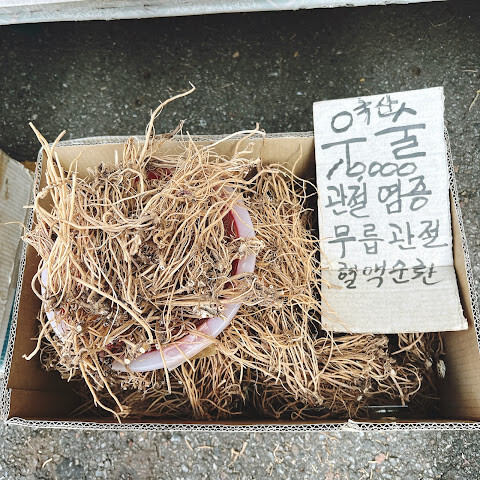 국산
우술
10,000
관절 염증
무릎 관절
혈액순환